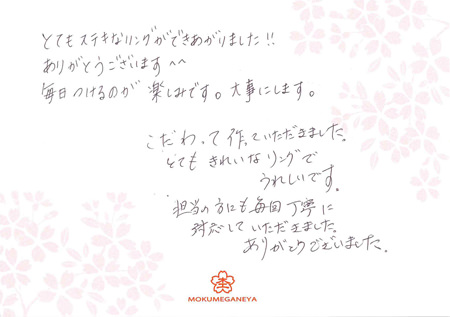 とてもステキなリングができあがりました!!
ありがとうございます^^
毎日つけるのが楽しみです。大事にします。
こだわって作っていただきました。
とてもきれいなリングで
うれしいです。
担当の方にも毎回丁寧に
対応していただきました。
ありがとうございました。
MOKUMEGANEYA